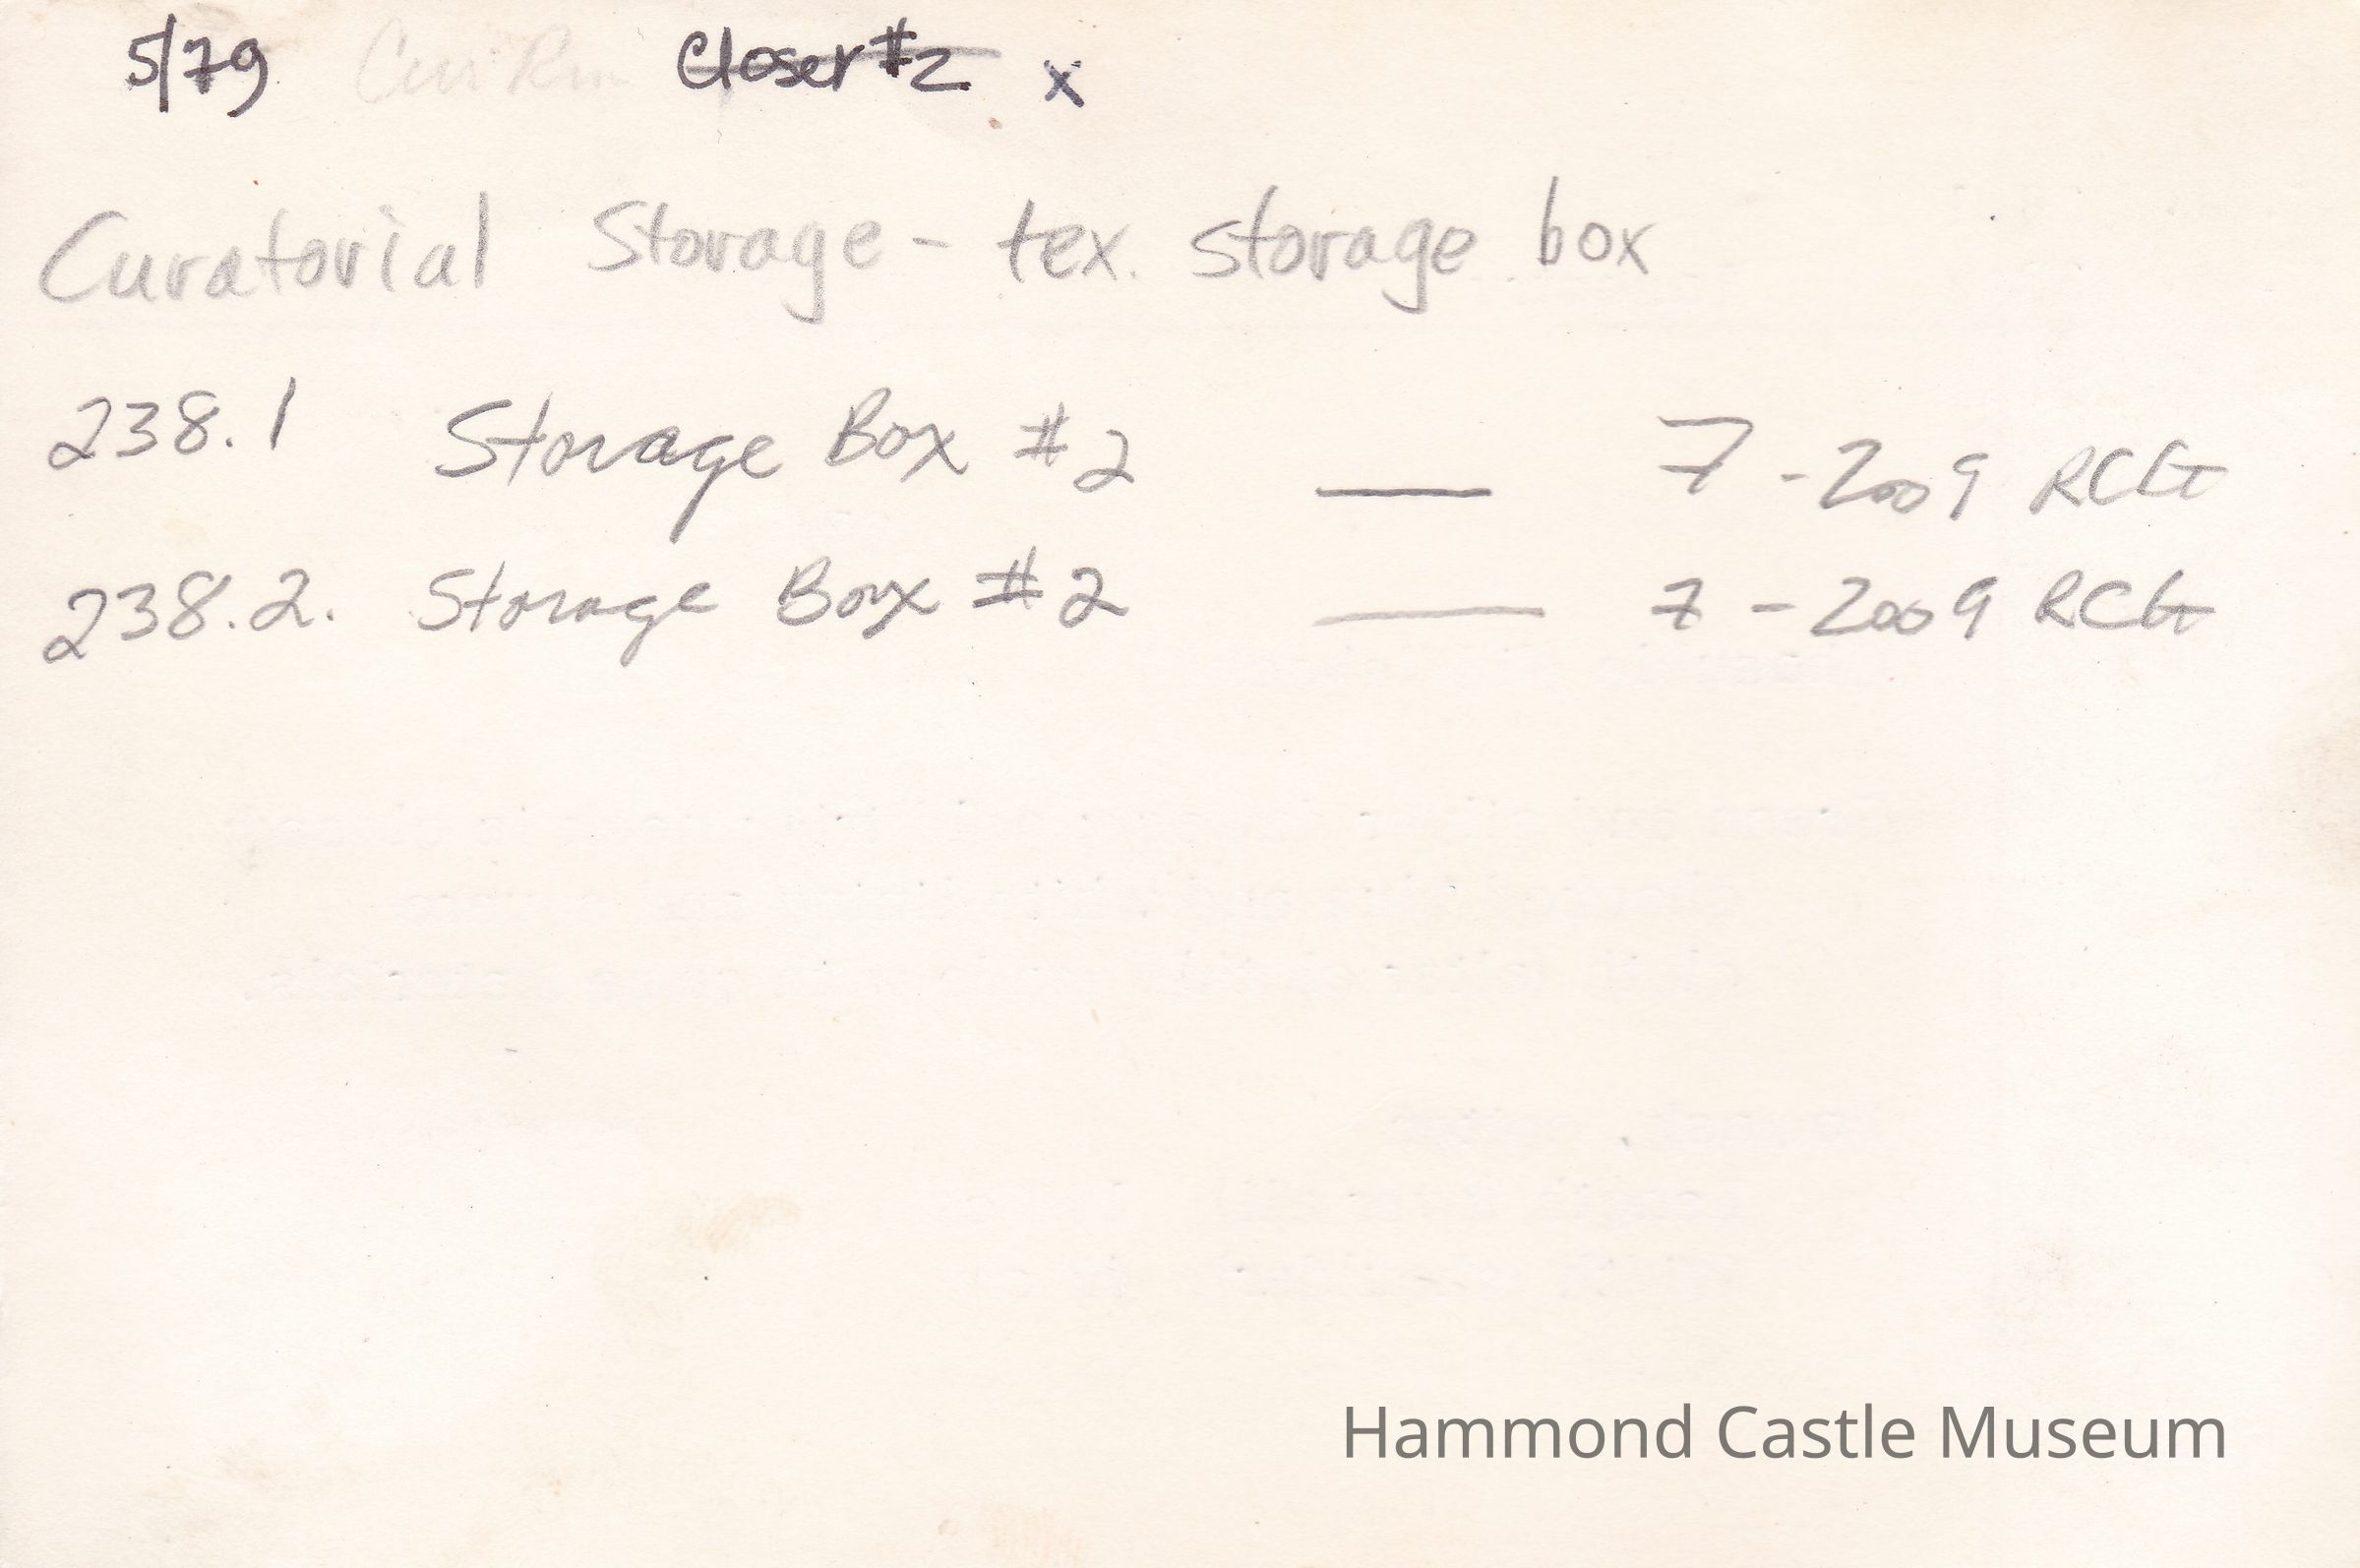 5/79 Cur Rm Closet #2 x
Curatorial Storage - tex. storage box
238.1 Storage Box #2 — 7-2009 RCG
238.2. Storage Box #2 — 7-2009 RCG
Hammond Castle Museum